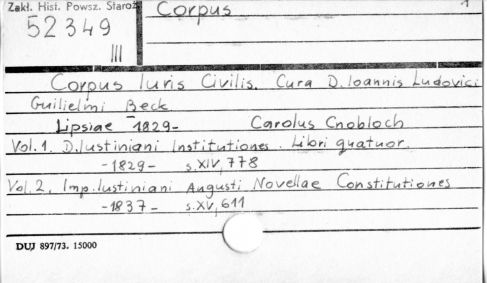 Zakł. Hist. Powsz. Staroż
Corpus
1
52349
III
Corpus Iuris Civilis. Cura D. Ioannis Ludovici
Guilielmi Beck
Lipsiae - 1829 - Carolus Cnobloch
Vol. 1. D. Iustiniani Institutiones. Libri quatuor.
- 1829 - s. XIV, 778
Vol. 2. Imp. Iustiniani Augusti Novellae Constitutiones
- 1837 - s. XV, 611
DUJ 897/73. 15000